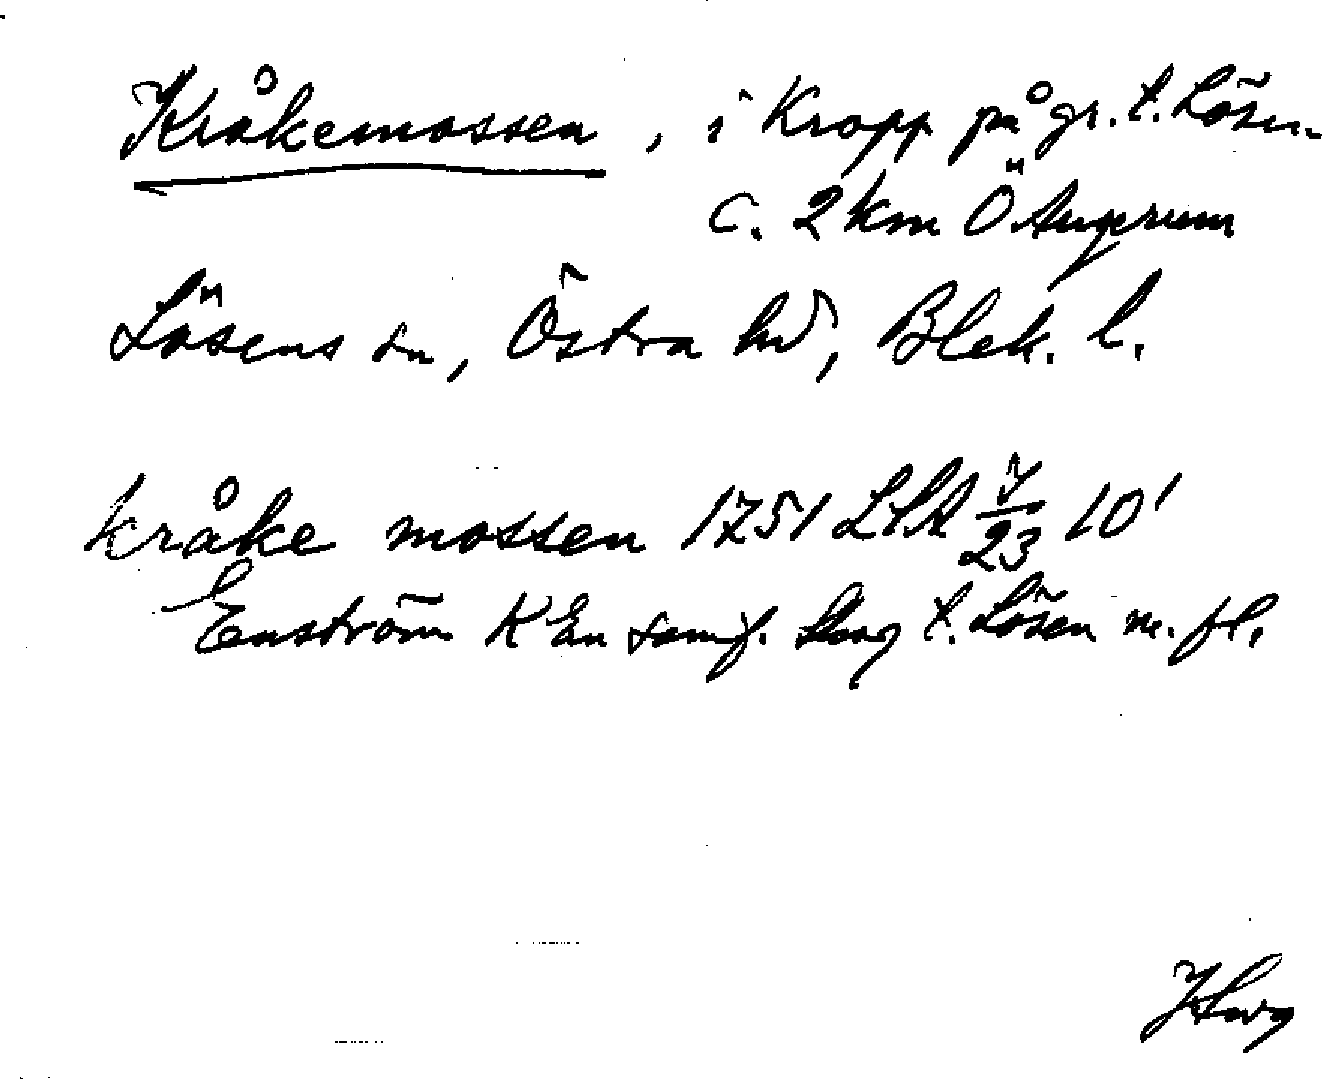 Kråkemossen, i Kropp på gr. t. Lösen
c. 2 km Ö Angerum
Lösens sn, Östra hd, Blek. l.
kråke mossen 1751 LSA 10'
Enström K En samf. skog t. Lösen m. fl.